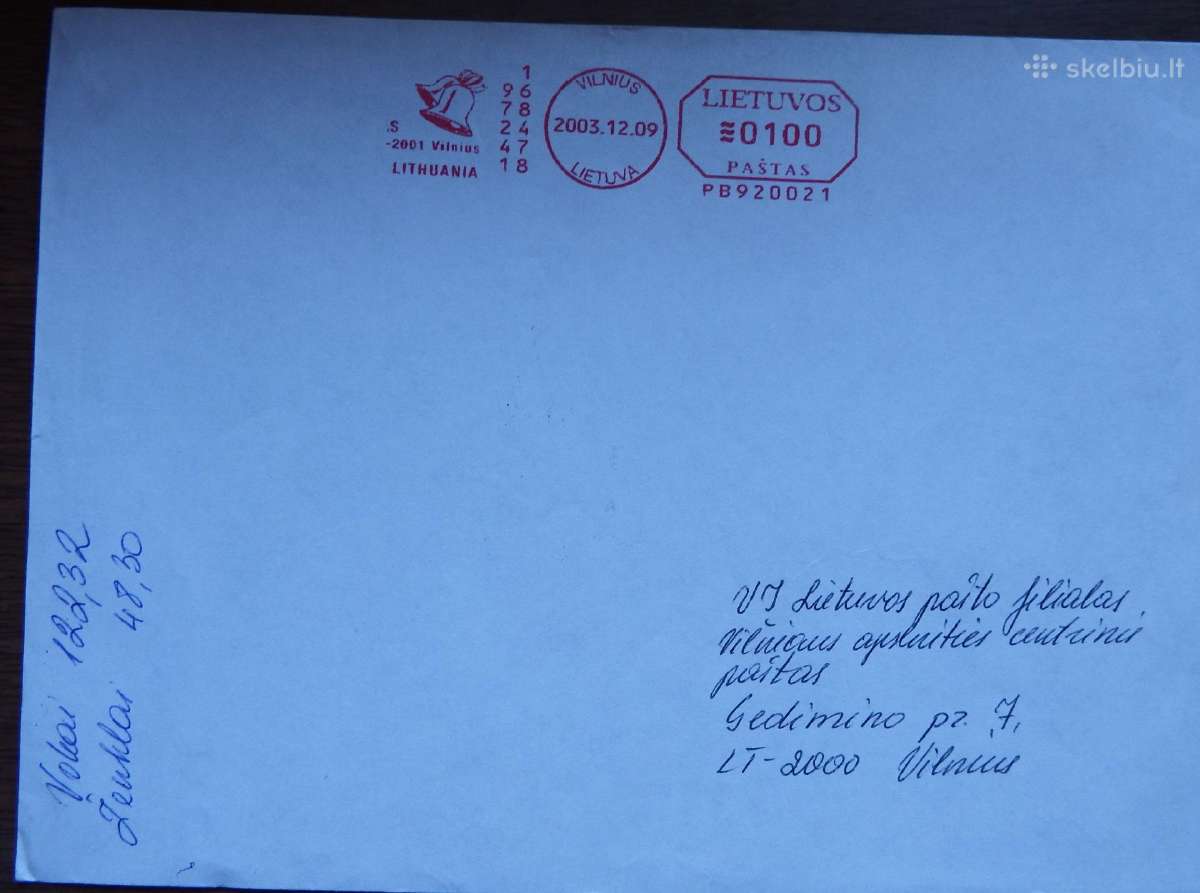 skelbiu.lt
1
96
78
24
47
18
.S
-2001 Vilnius
LITHUANIA
VILNIUS
2003.12.09
LIETUVA
LIETUVOS
≋0100
PAŠTAS
PB920021
VĮ Lietuvos pašto filialas
Vilniaus apskrities centrinis
paštas
Gedimino pr. 7,
LT-2000 Vilnius
Vokai 122,32
Ženklai 48,30